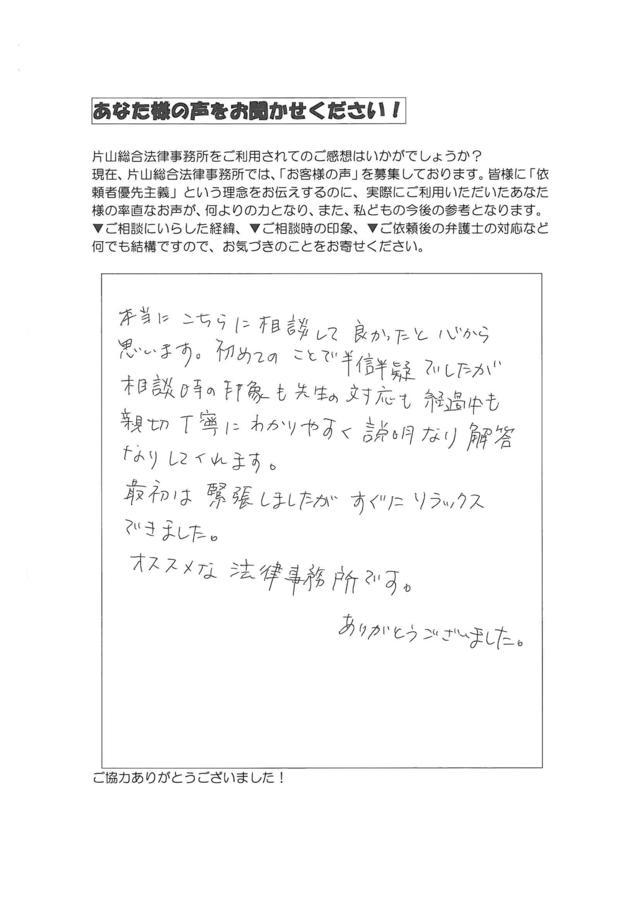 あなた様の声をお聞かせください！
片山総合法律事務所をご利用されてのご感想はいかがでしょうか？
現在、片山総合法律事務所では、「お客様の声」を募集しております。皆様に「依
頼者優先主義」という理念をお伝えするのに、実際にご利用いただいたあなた
様の率直なお声が、何よりの力となり、また、私どもの今後の参考となります。
▼ご相談にいらした経緯、▼ご相談時の印象、▼ご依頼後の弁護士の対応など
何でも結構ですので、お気づきのことをお寄せください。
本当にこちらに相談して良かったと心から
思います。初めてのことで半信半疑でしたが
相談時の印象も先生の対応も経過中も
親切丁寧にわかりやすく説明なり解答
なりしてくれます。
最初は緊張しましたがすぐにリラックス
できました。
オススメな法律事務所です。
ありがとうございました。
ご協力ありがとうございました！